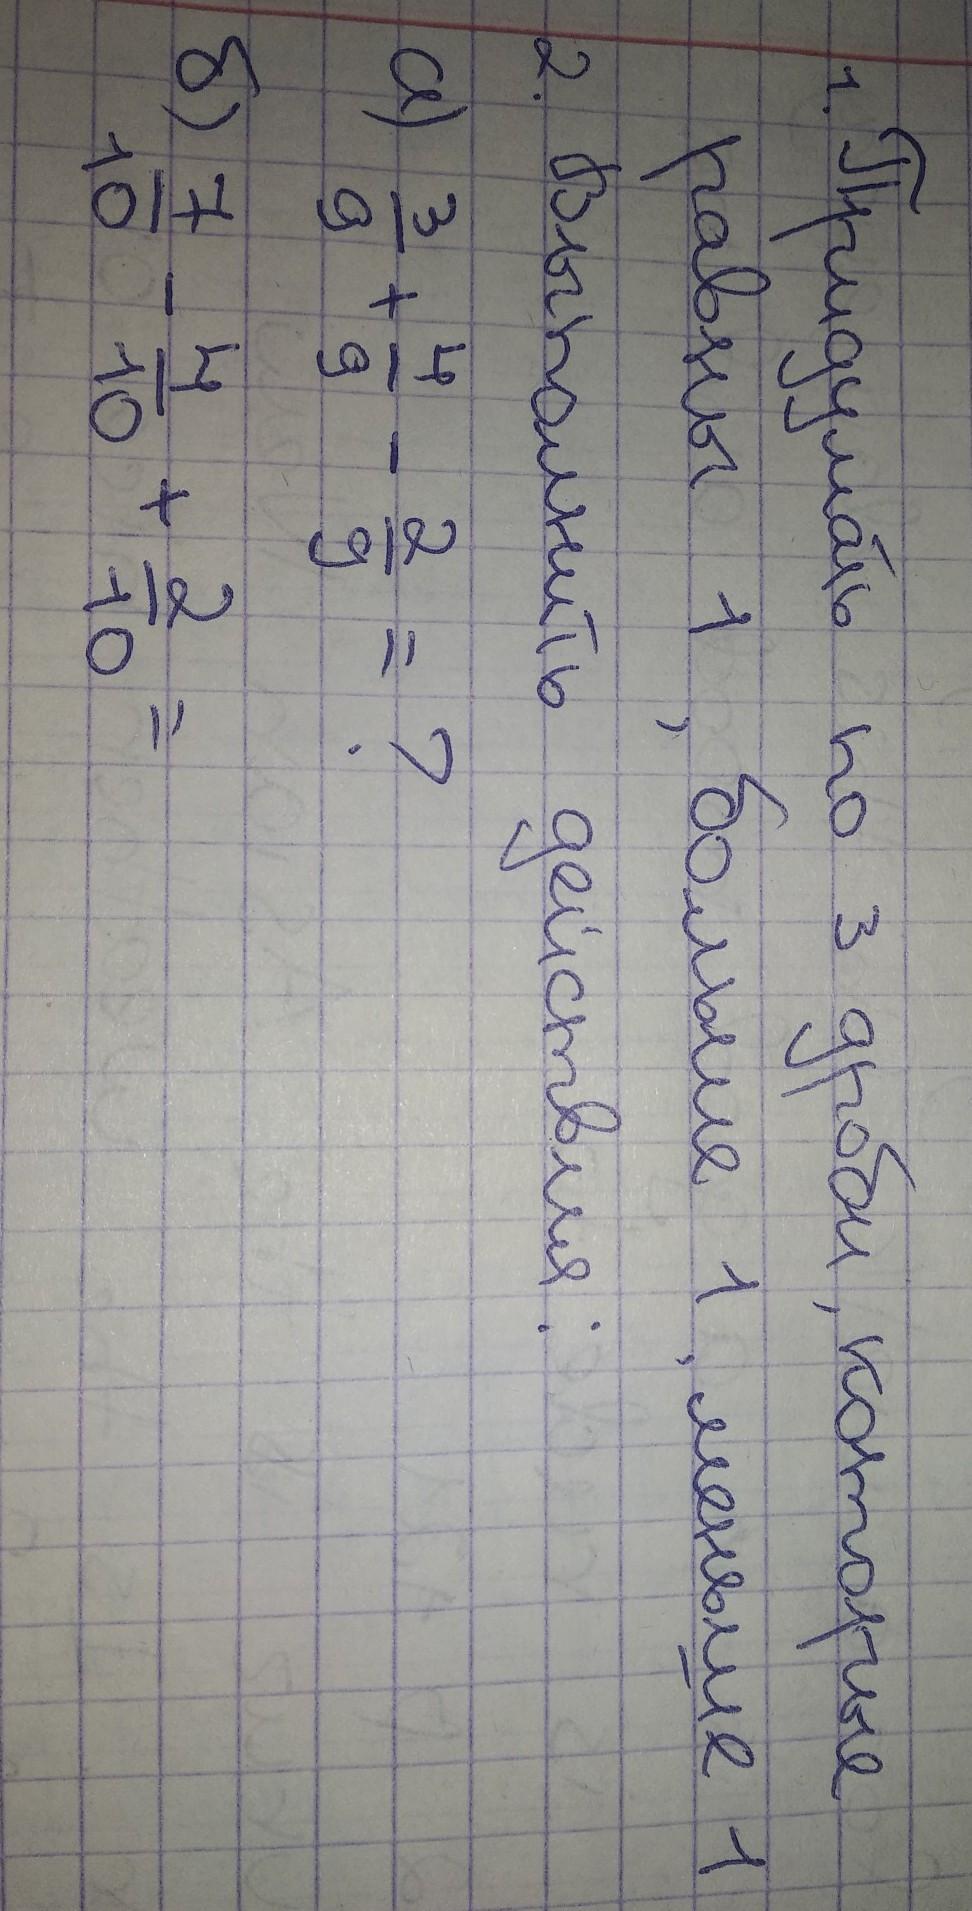 1. Придумать по 3 дроби, которые
равны 1, больше 1, меньше 1
2. Выполнить действия:
а) 3/9 + 4/9 - 2/9 = ?
б) 7/10 - 4/10 + 2/10 =